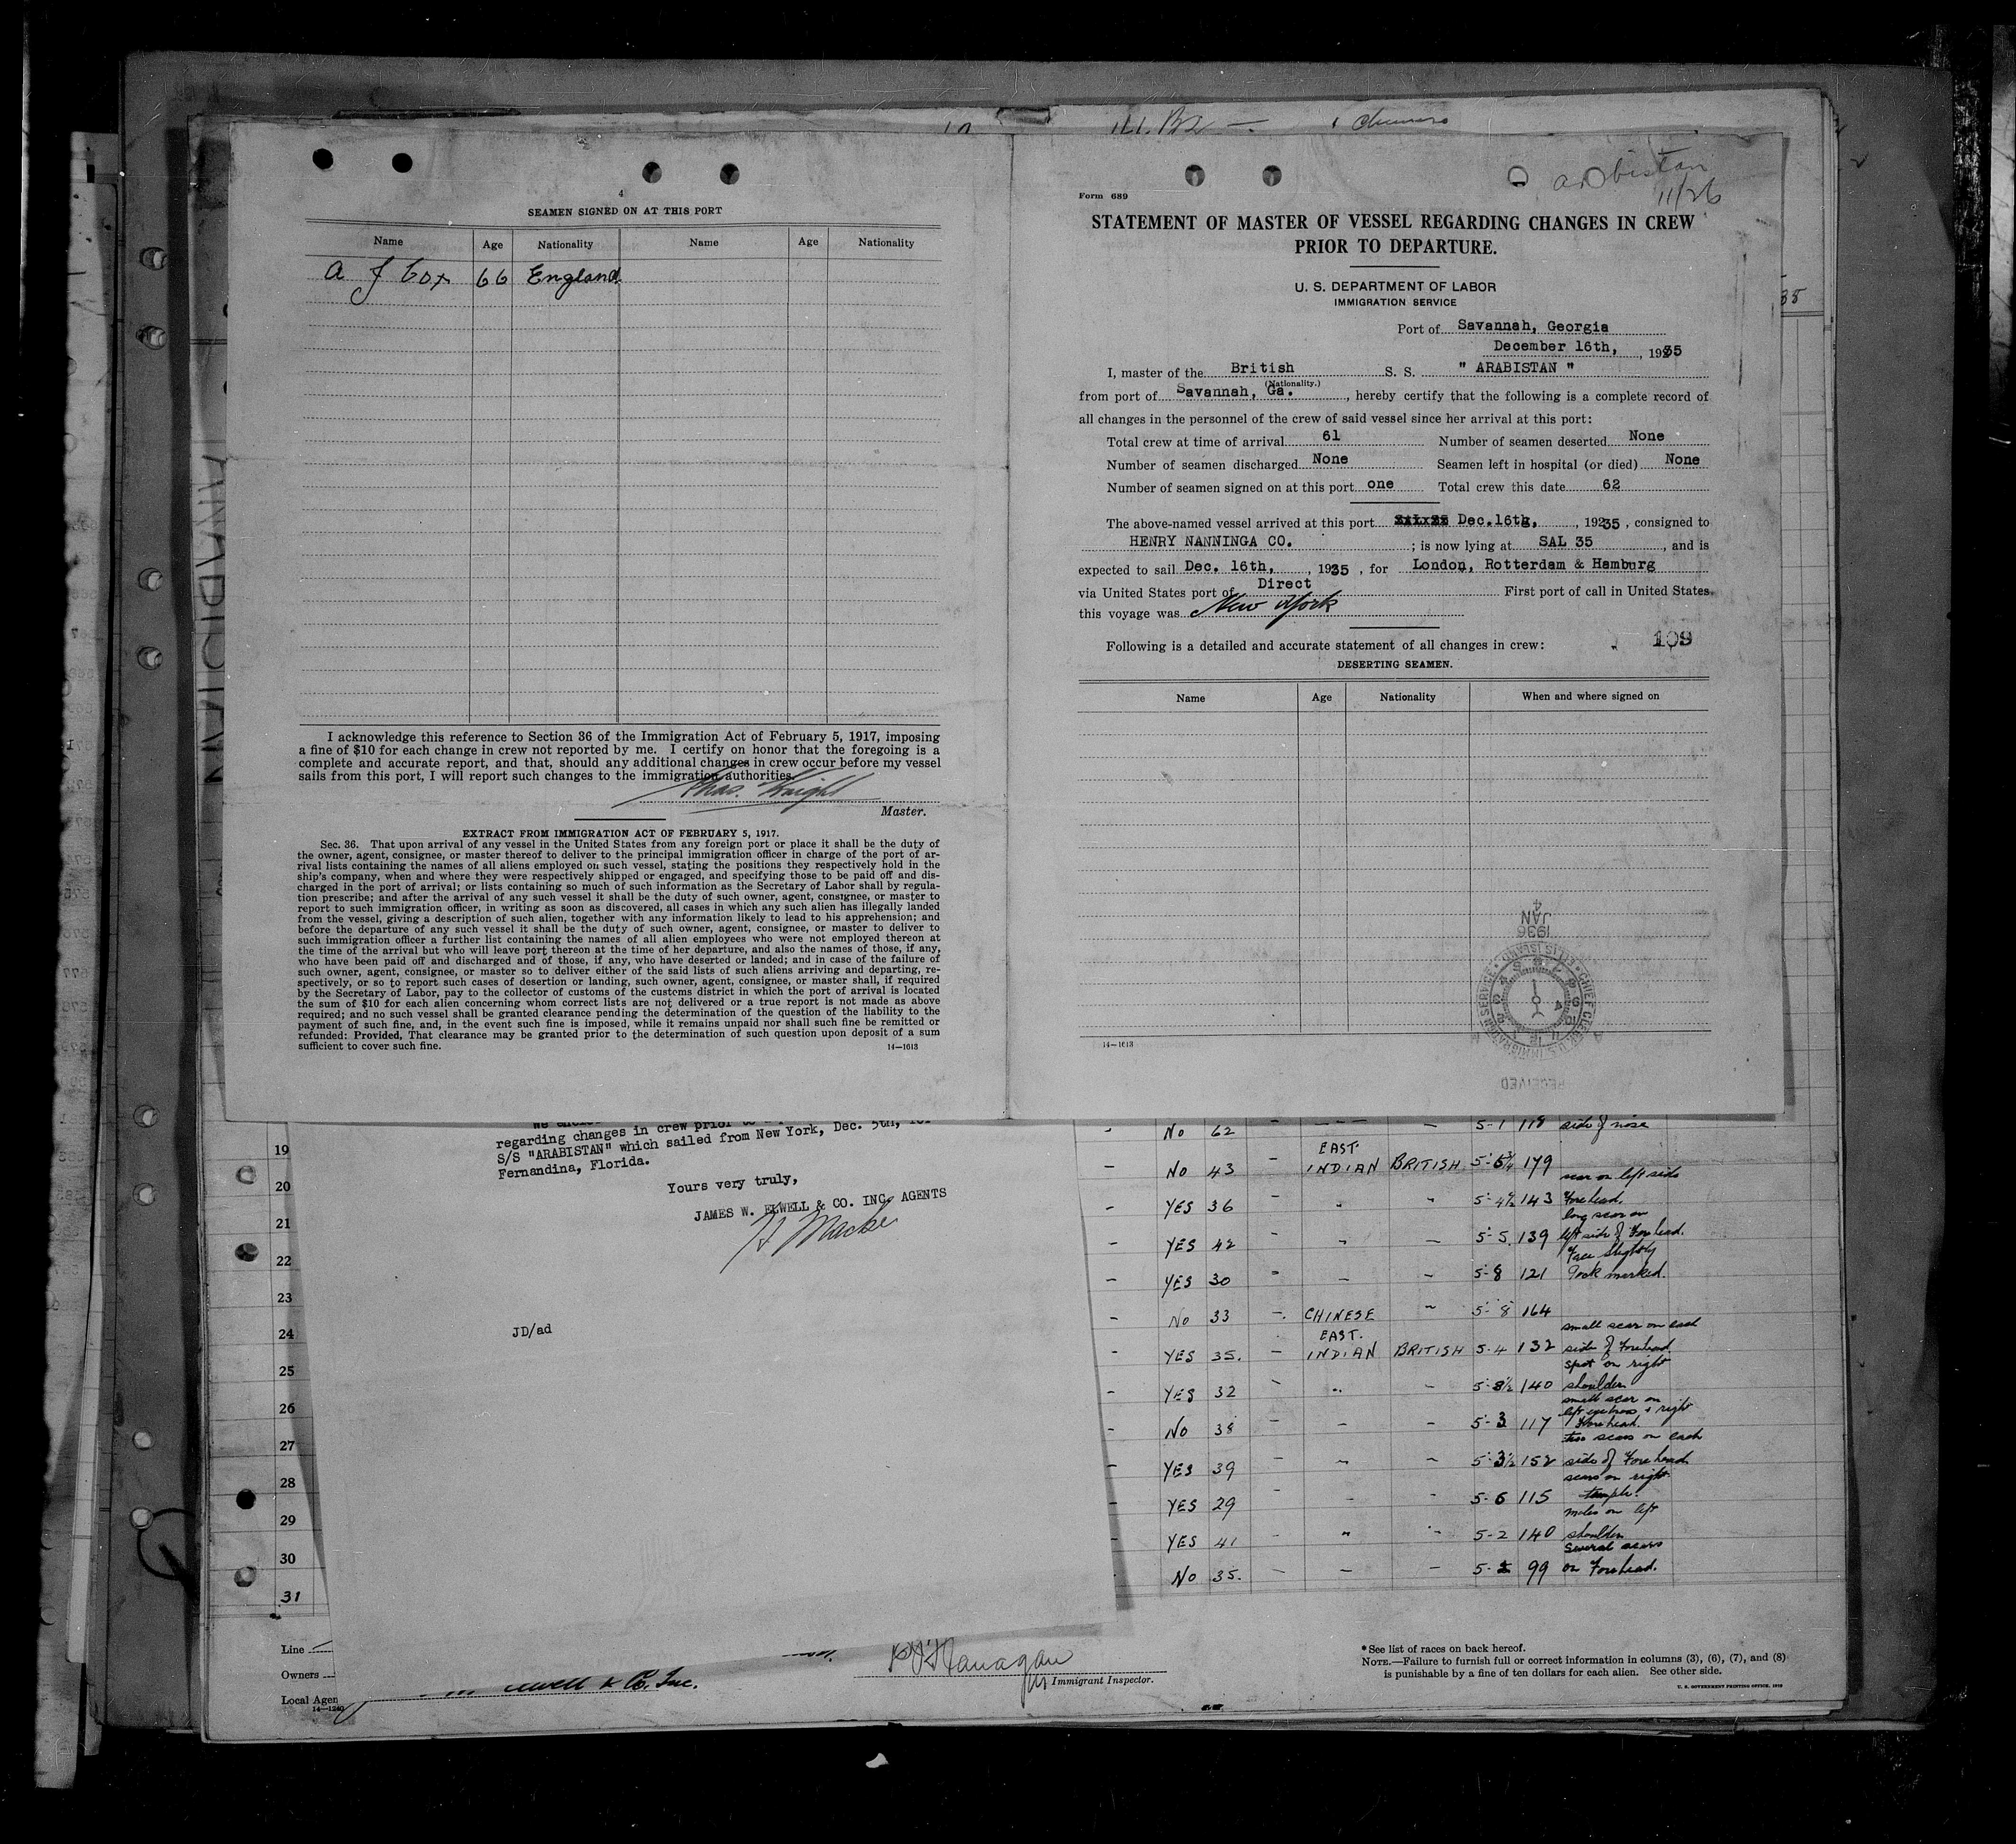 4
SEAMEN SIGNED ON AT THIS PORT
Name Age Nationality Name Age Nationality
A J Cox 66 England.
I acknowledge this reference to Section 36 of the Immigration Act of February 5, 1917, imposing
a fine of $10 for each change in crew not reported by me. I certify on honor that the foregoing is a
complete and accurate report, and that, should any additional changes in crew occur before my vessel
sails from this port, I will report such changes to the immigration authorities.
Chas. Knight
Master.
EXTRACT FROM IMMIGRATION ACT OF FEBRUARY 5, 1917.
Sec. 36. That upon arrival of any vessel in the United States from any foreign port or place it shall be the duty of
the owner, agent, consignee, or master thereof to deliver to the principal immigration officer in charge of the port of ar-
rival lists containing the names of all aliens employed on such vessel, stating the positions they respectively hold in the
ship's company, when and where they were respectively shipped or engaged, and specifying those to be paid off and dis-
charged in the port of arrival; or lists containing so much of such information as the Secretary of Labor shall by regula-
tion prescribe; and after the arrival of any such vessel it shall be the duty of such owner, agent, consignee, or master to
report to such immigration officer, in writing as soon as discovered, all cases in which any such alien has illegally landed
from the vessel, giving a description of such alien, together with any information likely to lead to his apprehension; and
before the departure of any such vessel it shall be the duty of such owner, agent, consignee, or master to deliver to
such immigration officer a further list containing the names of all alien employees who were not employed thereon at
the time of the arrival but who will leave port thereon at the time of her departure, and also the names of those, if any,
who have been paid off and discharged and of those, if any, who have deserted or landed; and in case of the failure of
such owner, agent, consignee, or master so to deliver either of the said lists of such aliens arriving and departing, re-
spectively, or so to report such cases of desertion or landing, such owner, agent, consignee, or master shall, if required
by the Secretary of Labor, pay to the collector of customs of the customs district in which the port of arrival is located
the sum of $10 for each alien concerning whom correct lists are not delivered or a true report is not made as above
required; and no such vessel shall be granted clearance pending the determination of the question of the liability to the
payment of such fine, and, in the event such fine is imposed, while it remains unpaid nor shall such fine be remitted or
refunded: Provided, That clearance may be granted prior to the determination of such question upon deposit of a sum
sufficient to cover such fine.
14—1613
Arabistan
11/26
Form 689
STATEMENT OF MASTER OF VESSEL REGARDING CHANGES IN CREW
PRIOR TO DEPARTURE.
U. S. DEPARTMENT OF LABOR
IMMIGRATION SERVICE
Port of Savannah, Georgia
December 16th, , 1935
I, master of the British S. S. " ARABISTAN "
(Nationality.)
from port of Savannah, Ga. , hereby certify that the following is a complete record of
all changes in the personnel of the crew of said vessel since her arrival at this port:
Total crew at time of arrival 61 Number of seamen deserted None
Number of seamen discharged None Seamen left in hospital (or died) None
Number of seamen signed on at this port one Total crew this date 62
The above-named vessel arrived at this port Dec.16th, , 1935 , consigned to
HENRY NANNINGA CO. ; is now lying at SAL 35 , and is
expected to sail Dec. 16th, , 1935 , for London, Rotterdam & Hamburg
via United States port of Direct First port of call in United States
this voyage was New York
Following is a detailed and accurate statement of all changes in crew: 109
DESERTING SEAMEN.
Name Age Nationality When and where signed on
1936
JAN
4
CHIEF CLERK, U.S. IMMIGRATION SERVICE • ELLIS ISLAND
RECEIVED
14—1613
regarding changes in crew prior to
S/S "ARABISTAN" which sailed from New York, Dec. 5th, for
Fernandina, Florida.
Yours very truly,
JAMES W. ELWELL & CO. INC. AGENTS
JD/ad
19
20
21
22
23
24
25
26
27
28
29
30
31
No 62 5-1 118 side of nose
No 43 EAST. INDIAN BRITISH 179
YES 36 5-4½ 143 scar on left side Forehead.
YES 42 5-5 139 long scar on left side of Forehead.
YES 30 5-8 121 Face Slightly Pock marked.
No 33 CHINESE 5-8 164
YES 35. EAST. INDIAN BRITISH 5-4 132 small scar on each side of Forehead
YES 32 5-8½ 140 spot on right shoulder
No 38 5-3 117 small scar on left eyebrow & right Forehead.
YES 39 5-3½ 152 two scars on each side of Forehead
YES 29 5-6 115 scars on right temple.
YES 41 5-2 140 moles on left shoulder
No 35. 99 Several scars on Forehead.
Line
Owners
Local Agen
14—1240
Elwell & Co. Inc.
Immigrant Inspector.
* See list of races on back hereof.
NOTE.—Failure to furnish full or correct information in columns (3), (6), (7), and (8)
is punishable by a fine of ten dollars for each alien. See other side.
U. S. GOVERNMENT PRINTING OFFICE